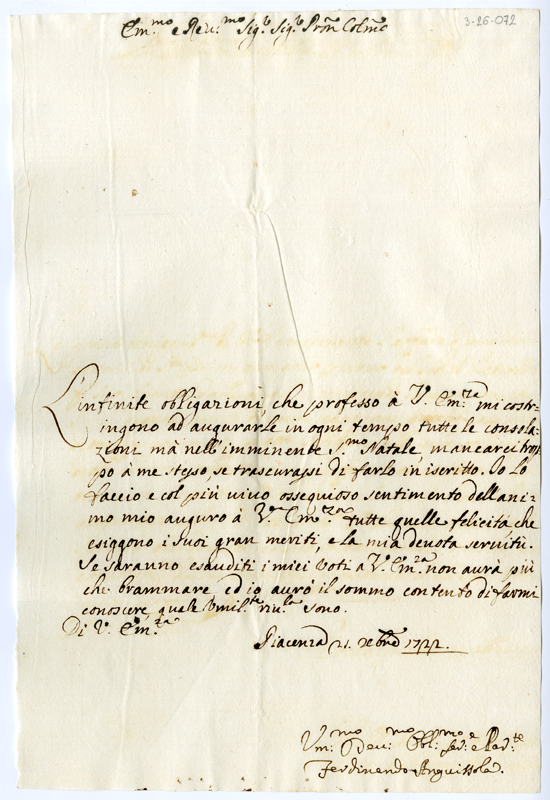 3-26-072
Em.mo e Rev.mo Sig.r Sig.r Pron Colmo
L'infinite obligazioni, che professo à V. Em.za mi costr-
ingono ad augurarle in ogni tempo tutte le consola-
zioni mà nell'imminente S.mo Natale, mancarei trop-
po à me stesso, se trascurassi di farlo in iscritto. Io lo
faccio e col più vivo ossequioso sentimento dell'ani-
mo mio auguro à V.ra Em.za tutte quelle felicità che
esiggono i suoi gran meriti, e la mia devota servitù.
Se saranno esauditi i miei voti à V.ra Em.za non aurà più
che brammare ed io aurò il sommo contento di farmi
conoscere, quale Vmil.te riu.la sono.
Di V. Em.za
Piacenza 21. Xebre 1722.
Vm.mo Deu.mo Obl.mo ser.e e Par.te
Ferdinando Anguissola.